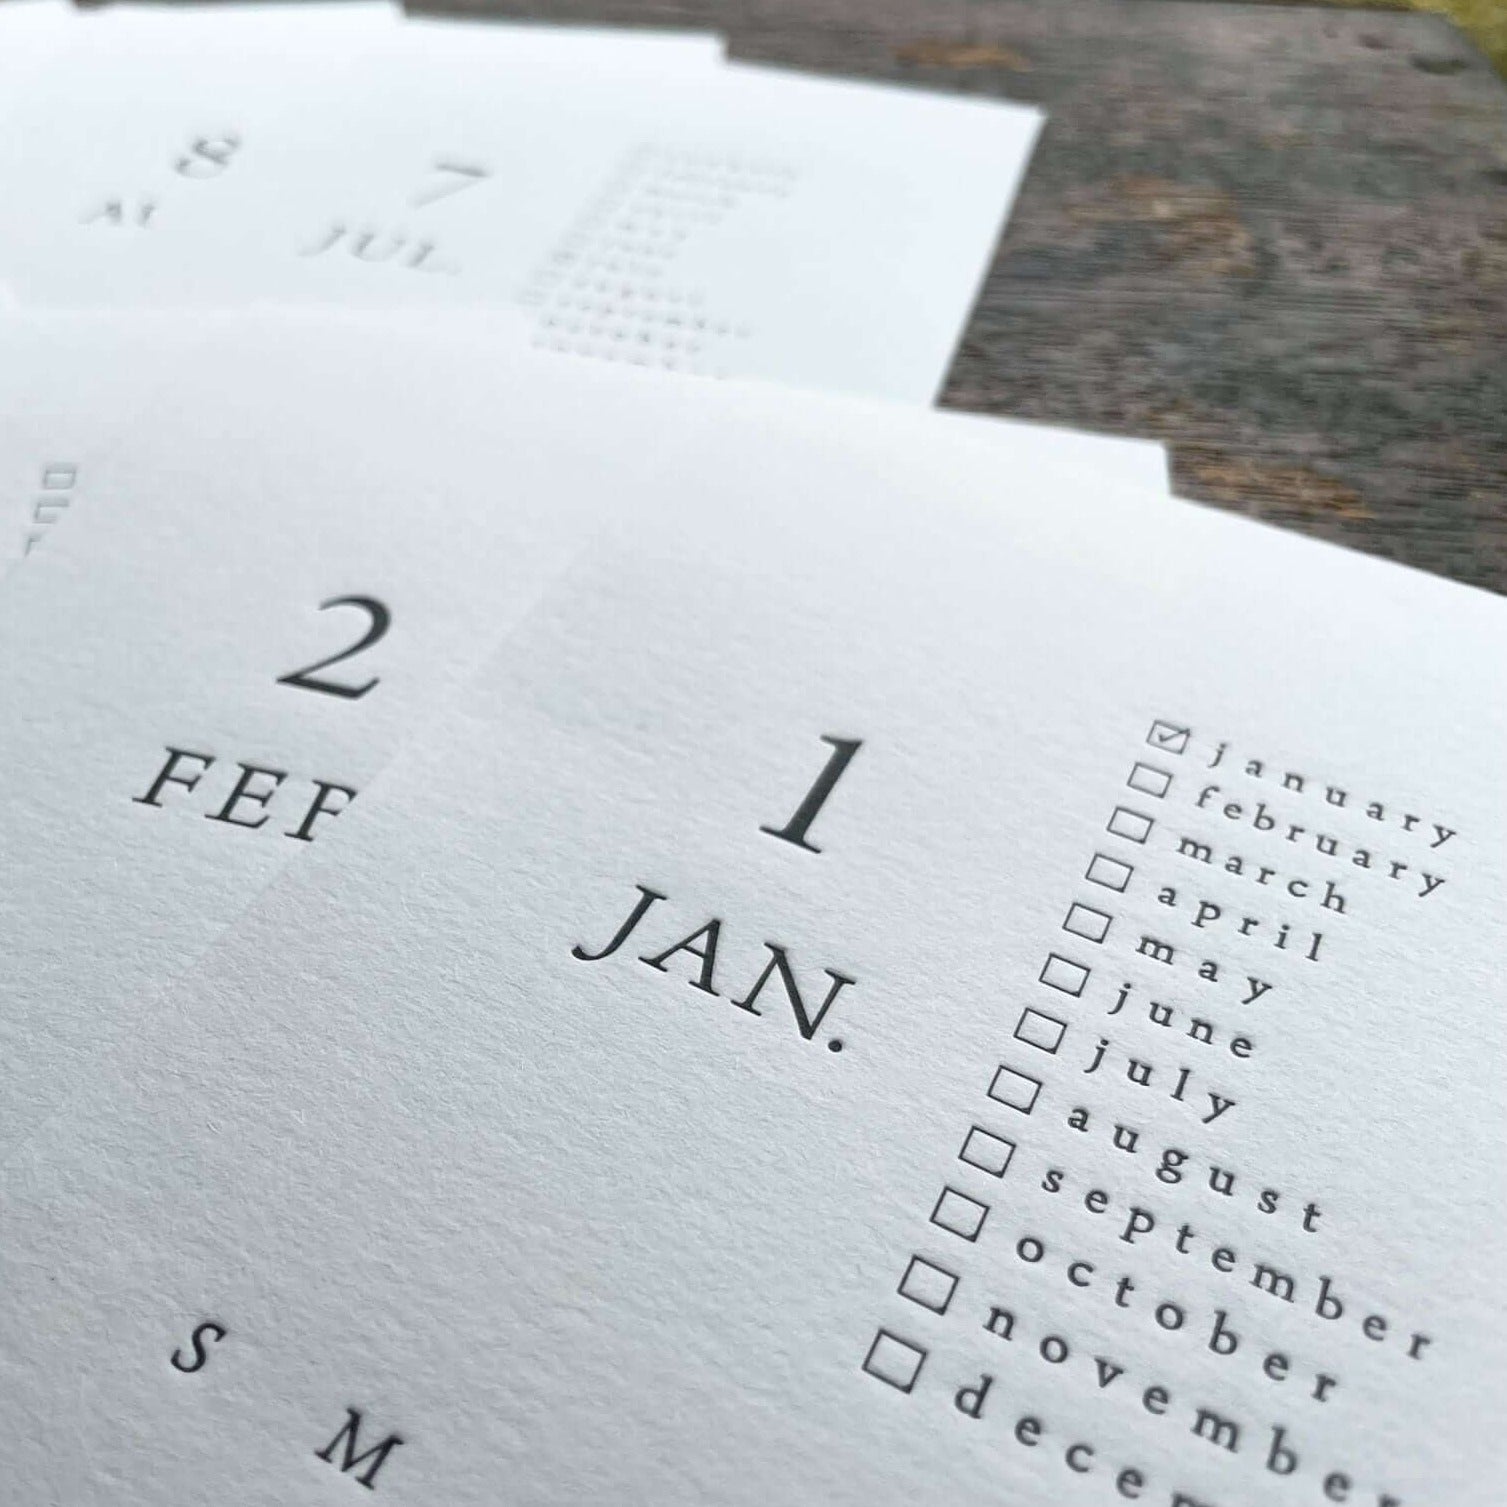 8
7
JUL.
2
FEB
1
JAN.
january
february
march
april
may
june
july
august
september
october
november
decem
S
M